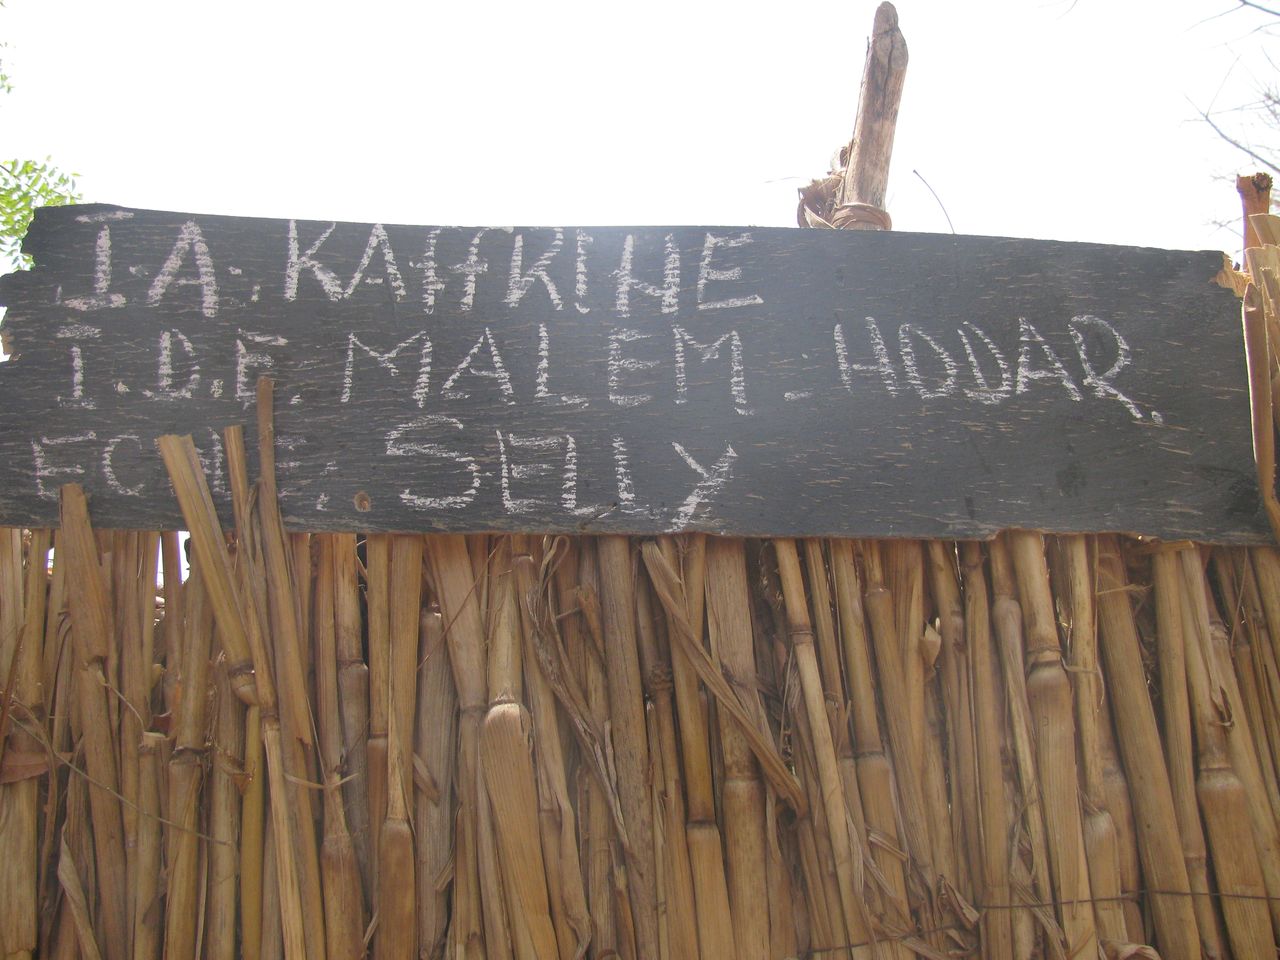 I.A. KAFFRINE
I.D.E. MALEM - HODAR.
ECOLE. SELLY